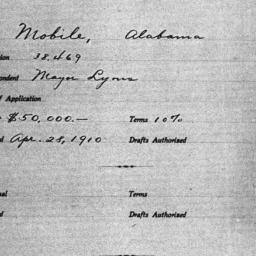 Mobile, Alabama
tion 38,469
pondent Mayor Lyons
f Application
$50,000.— Terms 10%
d Apr. 28, 1910 Drafts Authorized
nal Terms
d Drafts Authorized